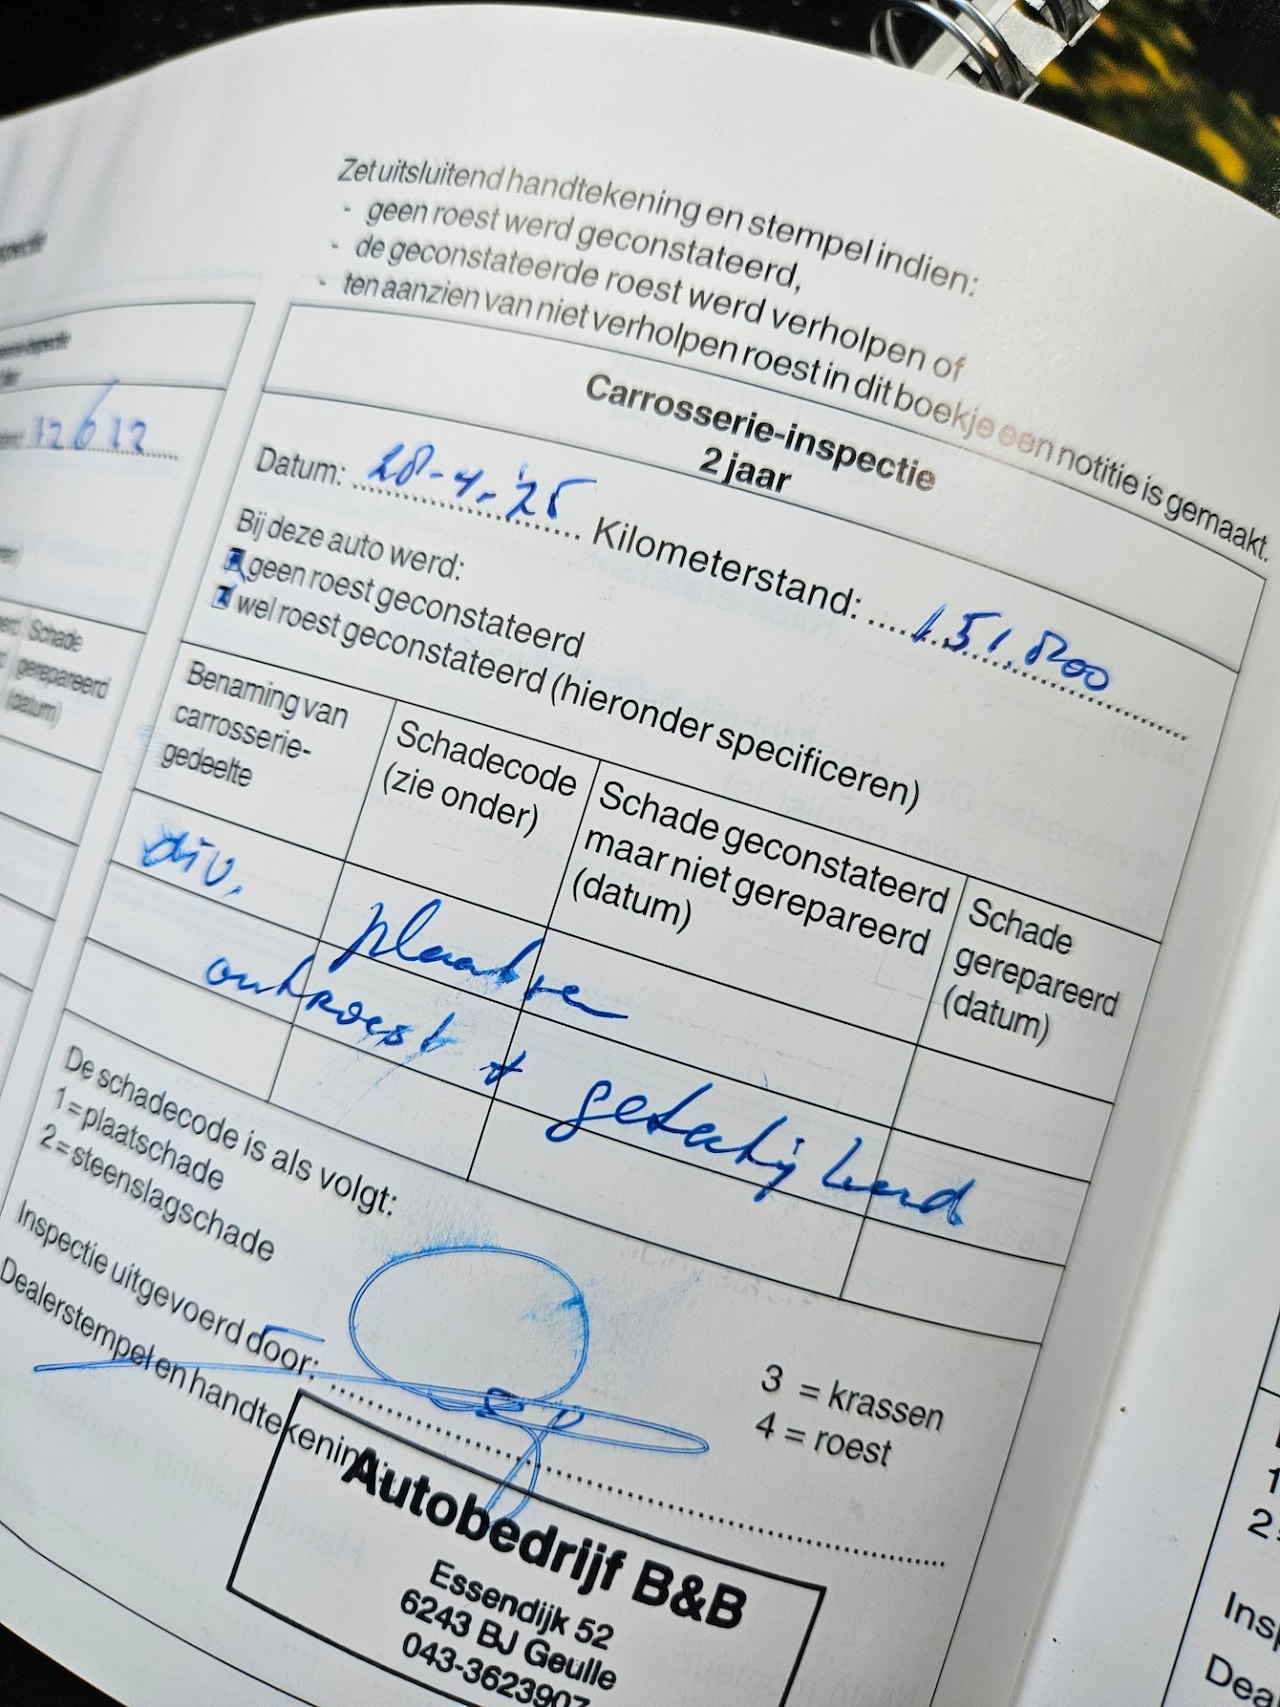 Zet uitsluitend handtekening en stempel indien:
- geen roest werd geconstateerd,
- de geconstateerde roest werd verholpen of
- ten aanzien van niet verholpen roest in dit boekje een notitie is gemaakt.
12/6 12
Schade
gerepareerd
(datum)
Carrosserie-inspectie
2 jaar
Datum: 28-4-'25 Kilometerstand: 151.800
Bij deze auto werd:
geen roest geconstateerd
wel roest geconstateerd (hieronder specificeren)
Benaming van
carrosserie-
gedeelte
Schadecode
(zie onder)
Schade geconstateerd
maar niet gerepareerd
(datum)
Schade
gerepareerd
(datum)
div. plaatsen
ontroest + getectyleerd
De schadecode is als volgt:
1 = plaatschade
2 = steenslagschade
3 = krassen
4 = roest
Inspectie uitgevoerd door:
Dealerstempel en handtekening:
Autobedrijf B&B
Essendijk 52
6243 BJ Geulle
043-3623907
1
2
Insp
Dea